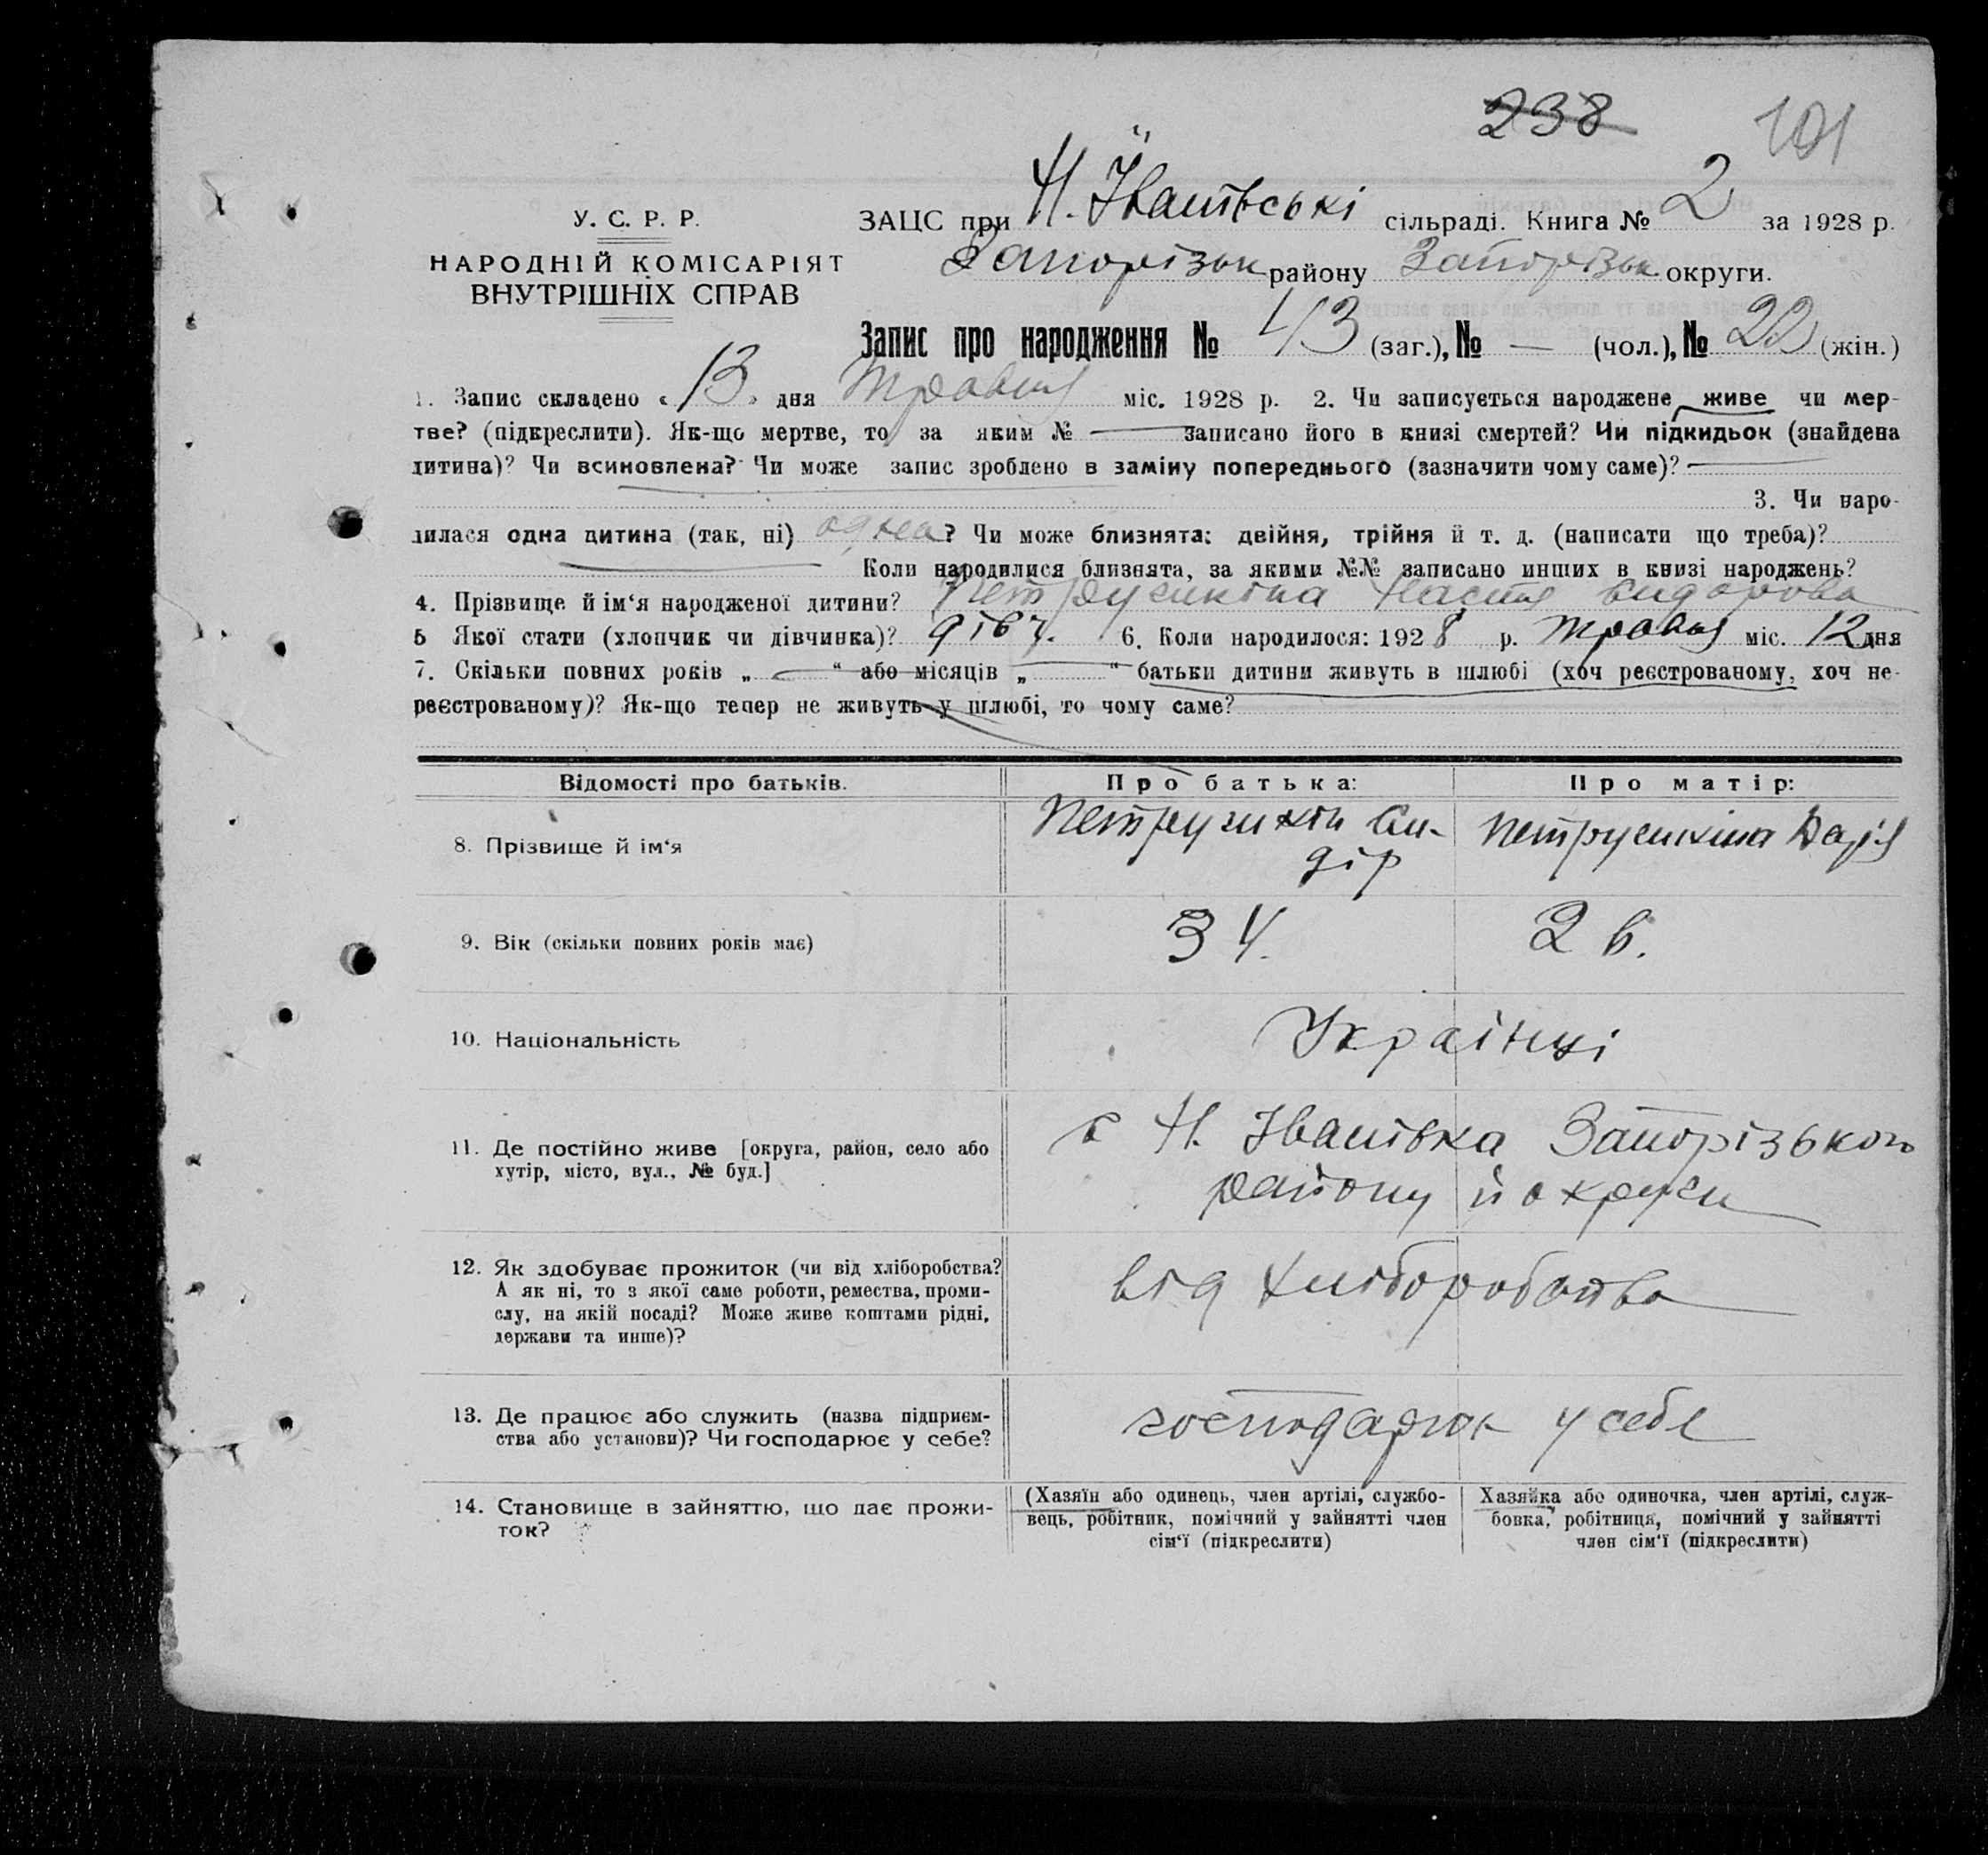 238 101
У. С. Р. Р.
НАРОДНІЙ КОМІСАРІЯТ
ВНУТРІШНІХ СПРАВ
ЗАЦС при Н. Іванівські сільраді. Книга № 2 за 1928 р.
Запорізьк району Запорізьк округи.
Запис про народження № 43 (заг.), № — (чол.), № 22 (жін.)
1. Запис складено « 13 » дня травня міс. 1928 р. 2. Чи записується народжене живе чи мер-
тве? (підкреслити). Як-що мертве, то за яким № — записано його в книзі смертей? Чи підкидьок (знайдена
дитина)? Чи всиновлена? Чи може запис зроблено в заміну попереднього (зазначити чому саме)? —
3. Чи наро-
дилася одна дитина (так, ні) одна? Чи може близнята: двійня, трійня й т. д. (написати що треба)?
Коли народилися близнята, за якими №№ записано инших в книзі народжень?
4. Прізвище й ім‘я народженої дитини? Настя Сидорова
5 Якої стати (хлопчик чи дівчинка)? дівч. 6. Коли народилося: 1928 р. травня міс. 12 дня
7. Скільки повних років „ — “ або місяців „ — “ батьки дитини живуть в шлюбі (хоч реєстрованому, хоч не-
реєстрованому)? Як-що тепер не живуть у шлюбі, то чому саме?
Відомості про батьків. Про батька: Про матір:
8. Прізвище й ім‘я Си-
дір Дар'я
9. Вік (скільки повних років має) 34. 26.
10. Національність Українці
11. Де постійно живе [округа, район, село або
хутір, місто, вул., № буд.] с Н. Іванівка Запорізького
району й округи
12. Як здобуває прожиток (чи від хліборобства?
А як ні, то з якої саме роботи, ремества, проми-
слу, на якій посаді? Може живе коштами рідні,
держави та инше)? від хліборобства
13. Де працює або служить (назва підприєм-
ства або установи)? Чи господарює у себе? господарюк у себе
14. Становище в зайняттю, що дає прожи-
ток?
(Хазяїн або одинець, член артілі, службо-
вець, робітник, помічний у зайнятті член
сім‘ї (підкреслити)
Хазяйка або одиночка, член артілі, служ-
бовка, робітниця, помічний у зайнятті
член сім‘ї (підкреслити)